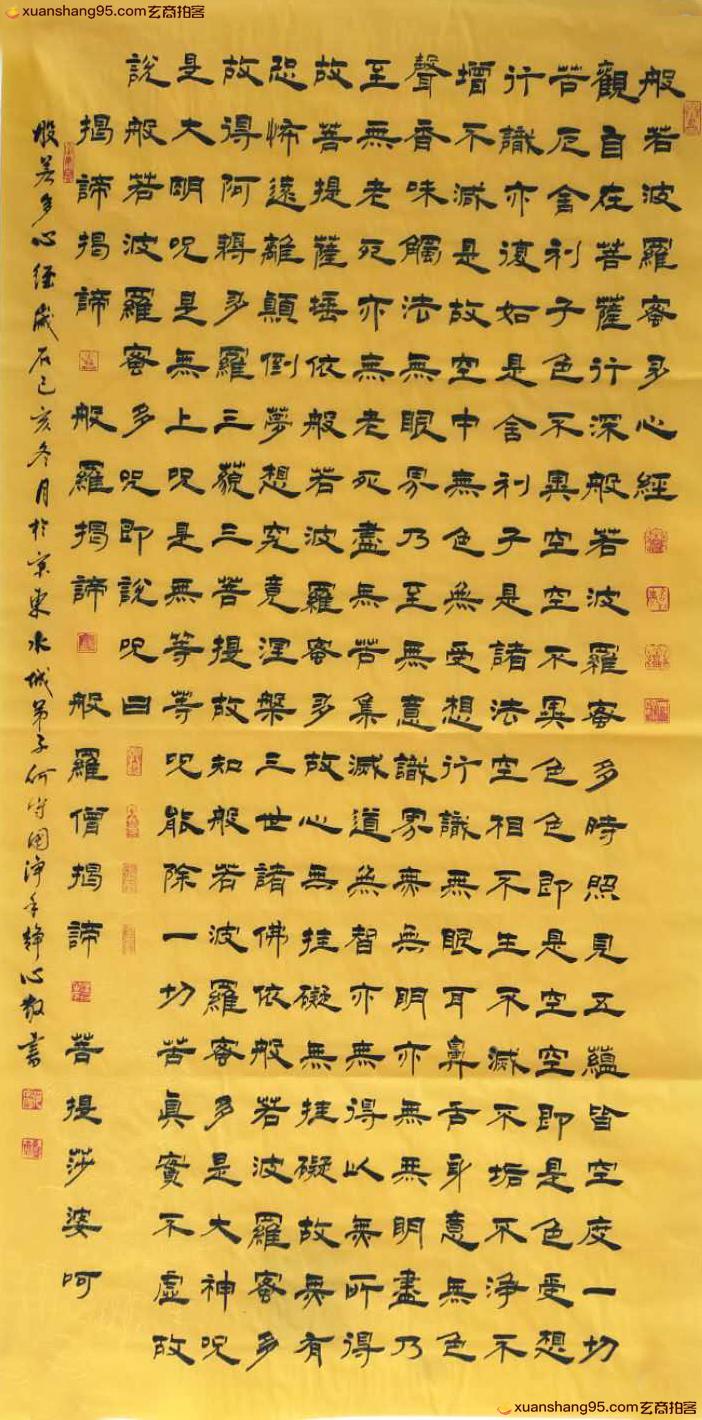 xuanshang95.com玄商拍客
般若波羅蜜多心經
觀自在菩薩行深般若波羅蜜多時照見五蘊皆空度一切
苦厄舍利子色不異空空不異色色即是空空即是色受想
行識亦復如是舍利子是諸法空相不生不滅不垢不淨不
增不減是故空中無色無受想行識無眼耳鼻舌身意無色
聲香味觸法無眼界乃至無意識界無無明亦無無明盡乃
至無老死亦無老死盡無苦集滅道無智亦無得以無所得
故菩提薩埵依般若波羅蜜多故心無挂礙無挂礙故無有
恐怖遠離顛倒夢想究竟涅槃三世諸佛依般若波羅蜜多
故得阿耨多羅三藐三菩提故知般若波羅蜜多是大神呪
是大明呪是無上呪是無等等呪能除一切苦真實不虛故
說般若波羅蜜多呪即說呪曰
揭諦揭諦 般羅揭諦 般羅僧揭諦 菩提莎婆呵
般若多心經歲在己亥冬月於京東水城弟子何守國淨手靜心敬書
xuanshang95.com玄商拍客